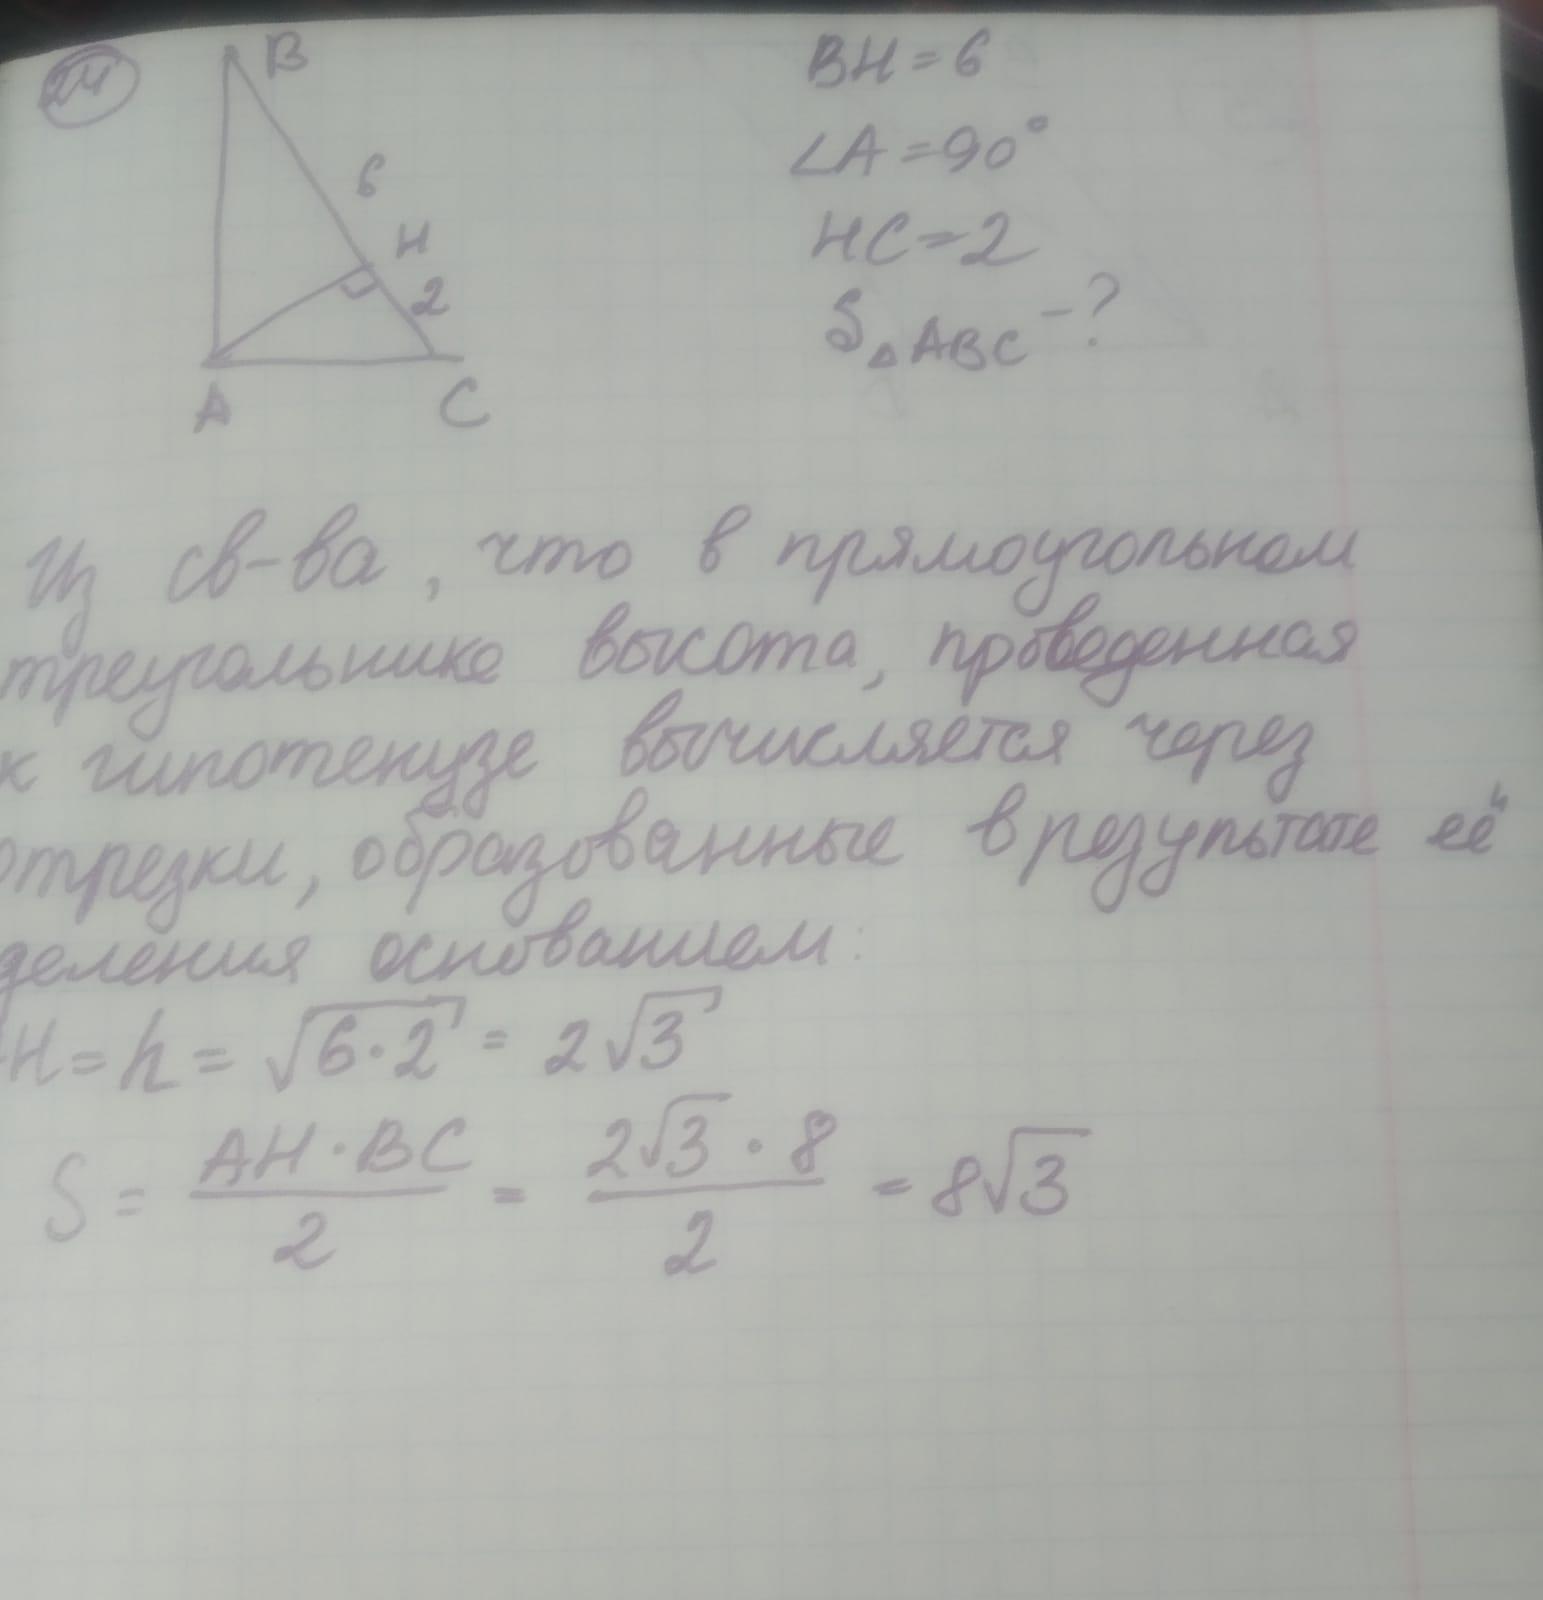 24
B
6
H
2
A C
BH = 6
∠A = 90°
HC = 2
S△ABC - ?
Из св-ва, что в прямоугольном
треугольнике высота, проведенная
к гипотенузе вычисляется через
отрезки, образованные в результате её
деления основанием:
H = h = √6·2 = 2√3
S = AH·BC/2 = 2√3·8/2 = 8√3